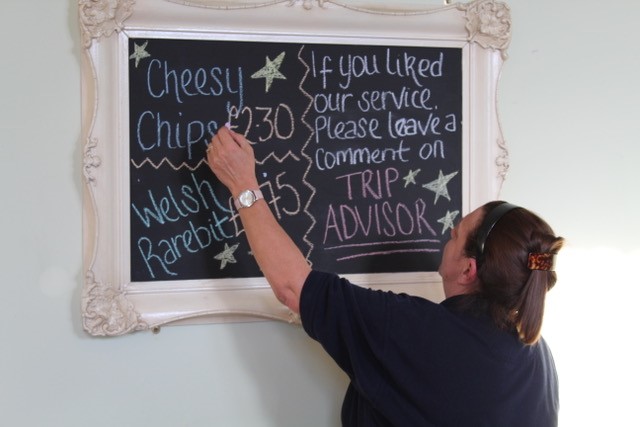 Cheesy
Chips £230
Welsh
Rarebit
If you liked
our service.
Please leave a
comment on
TRIP
ADVISOR